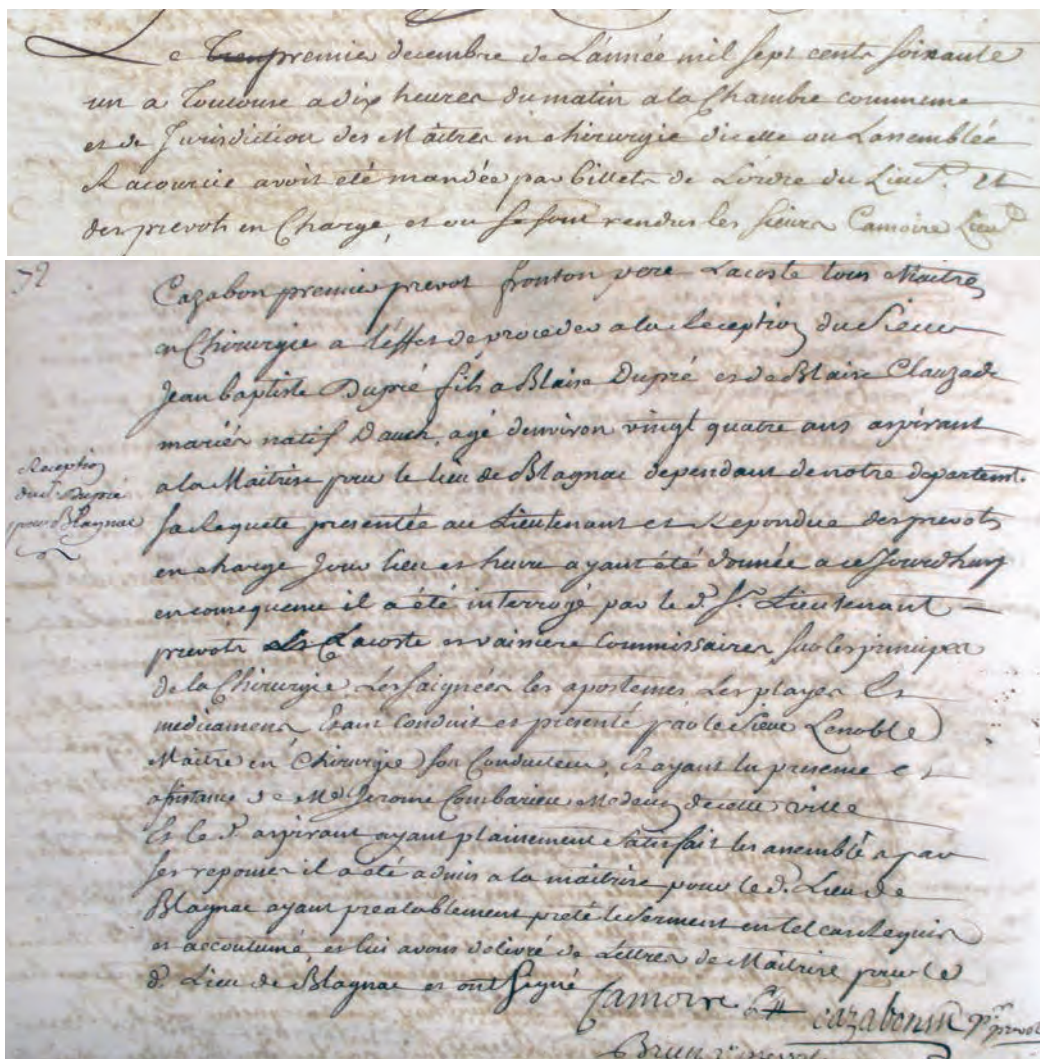 Le premier decembre de L'année mil sept cents soixante
un a Toulouse a dix heures du matin a la Chambre commune
et de Jurisdiction des Maitres en chirurgie dicelle ou Lassemblée
Racourcie avoit eté mandée par billets de L'ordre du Lieut. et
des prevots en Charge, et ou se sont rendus les sieurs Camoire Lieut
72
Cazabon premier prevot fronton pere Lacoste tous Maitres
en Chirurgie a l'effet de proceder a la Reception du Sieur
Jean baptiste Dupié fils a Blaise Dupié et de Blaise Clauzade
mariés natif Dauch, agé denviron vingt quatre ans aspirant
a la Maitrise pour le lieu de Blagnac dependant de notre departemt.
Reception
du Sr. Dupié
pour Blagnac
sa Requete presentée au Lieutenant et Repondue des prevots
en charge Jour lieu et heure ayant été donnée a ce Jourdhuy
en consequence il a été interrogé par le d. Sr. Lieutenant
prevots Lacoste et vaissiere Commissaires sur les principes
de la Chirurgie Les saignées les apostemes Les playes Les
medicamens Etant Conduit et presenté par le Sieur Lenoble
Maitre en Chirurgie son Conducteur, et ayant la presence et
assistance de Me. Jerome Combarieu Medecin de cette ville
Et le d. aspirant ayant plainement satisfait les assemblés par
ses reponses il a été admis a la maitrise pour le d. Lieu de
Blagnac ayant prealablement preté le serment en tel cas Requis
et accoutumé, et lui avons delivré de Lettres de Maitrise pour le
d. Lieu de Blagnac et ont signé
Camoire Lt cazabonm pr. prevot
Brun prevot